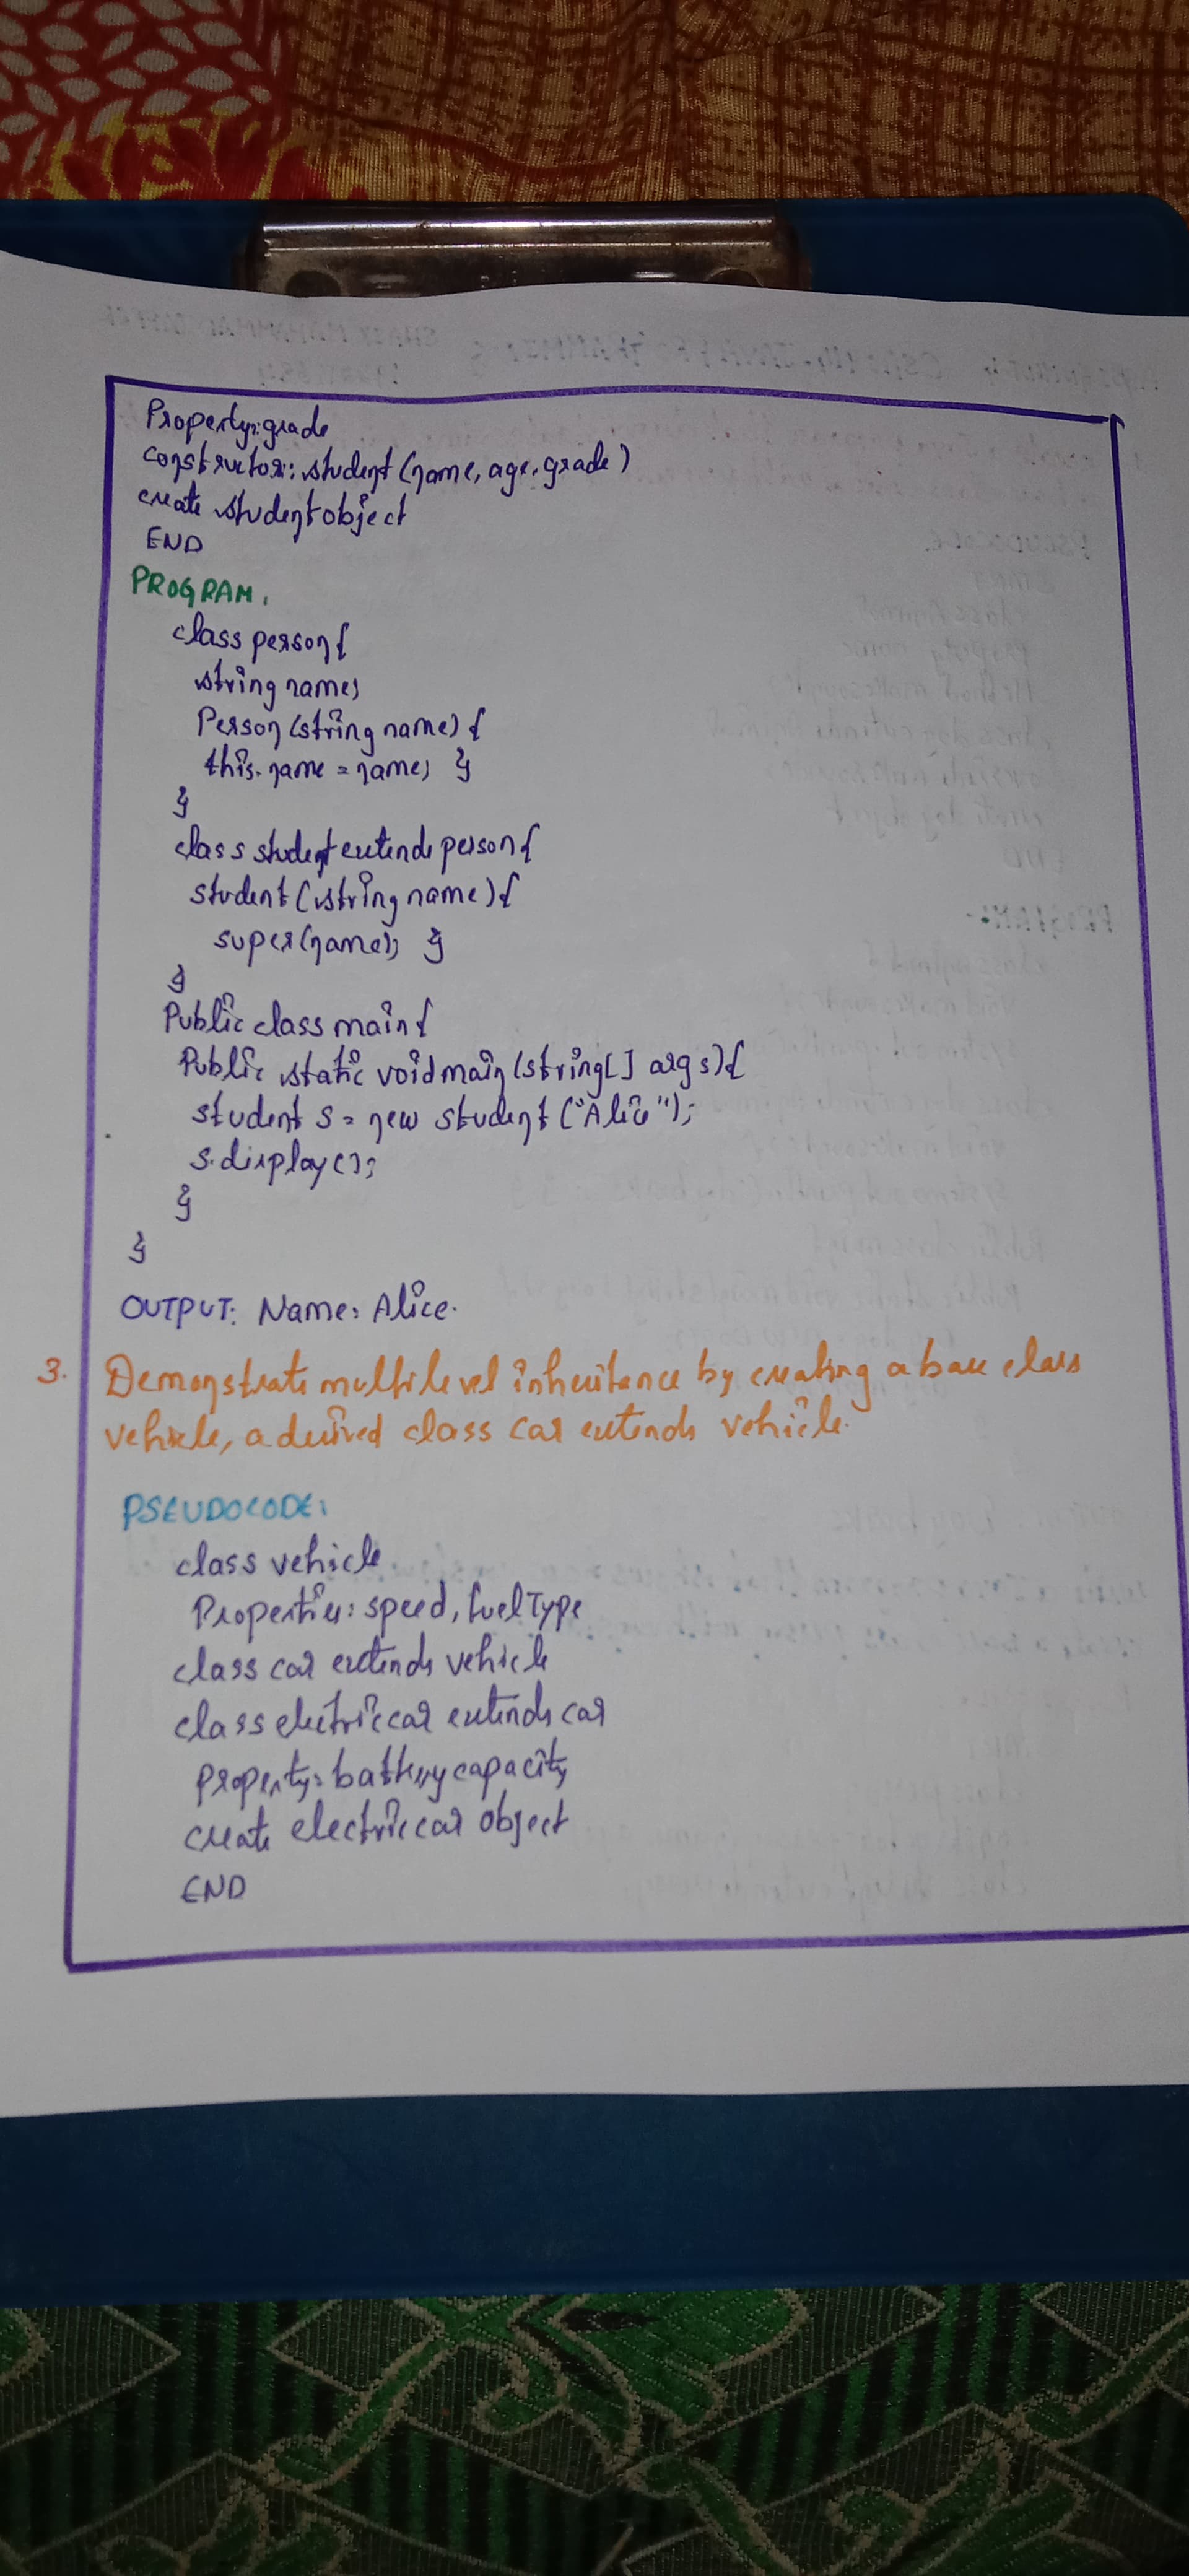 Property: grade
constructor: student (name, age, grade)
create student object
END
PROGRAM:
class person {
string name;
Person (string name) {
this.name = name; }
}
class student extends person {
student (string name) {
super(name); }
}
Public class main {
Public static void main (string[] args) {
student s = new student ("Alice");
s.display();
}
}
OUTPUT: Name: Alice.
3. Demonstrate multilevel inheritance by creating a base class
vehicle, a derived class car extends vehicle.
PSEUDOCODE:
class vehicle
Properties: speed, fuelType
class car extends vehicle
class electric car extends car
Property: battery capacity
create electric car object
END